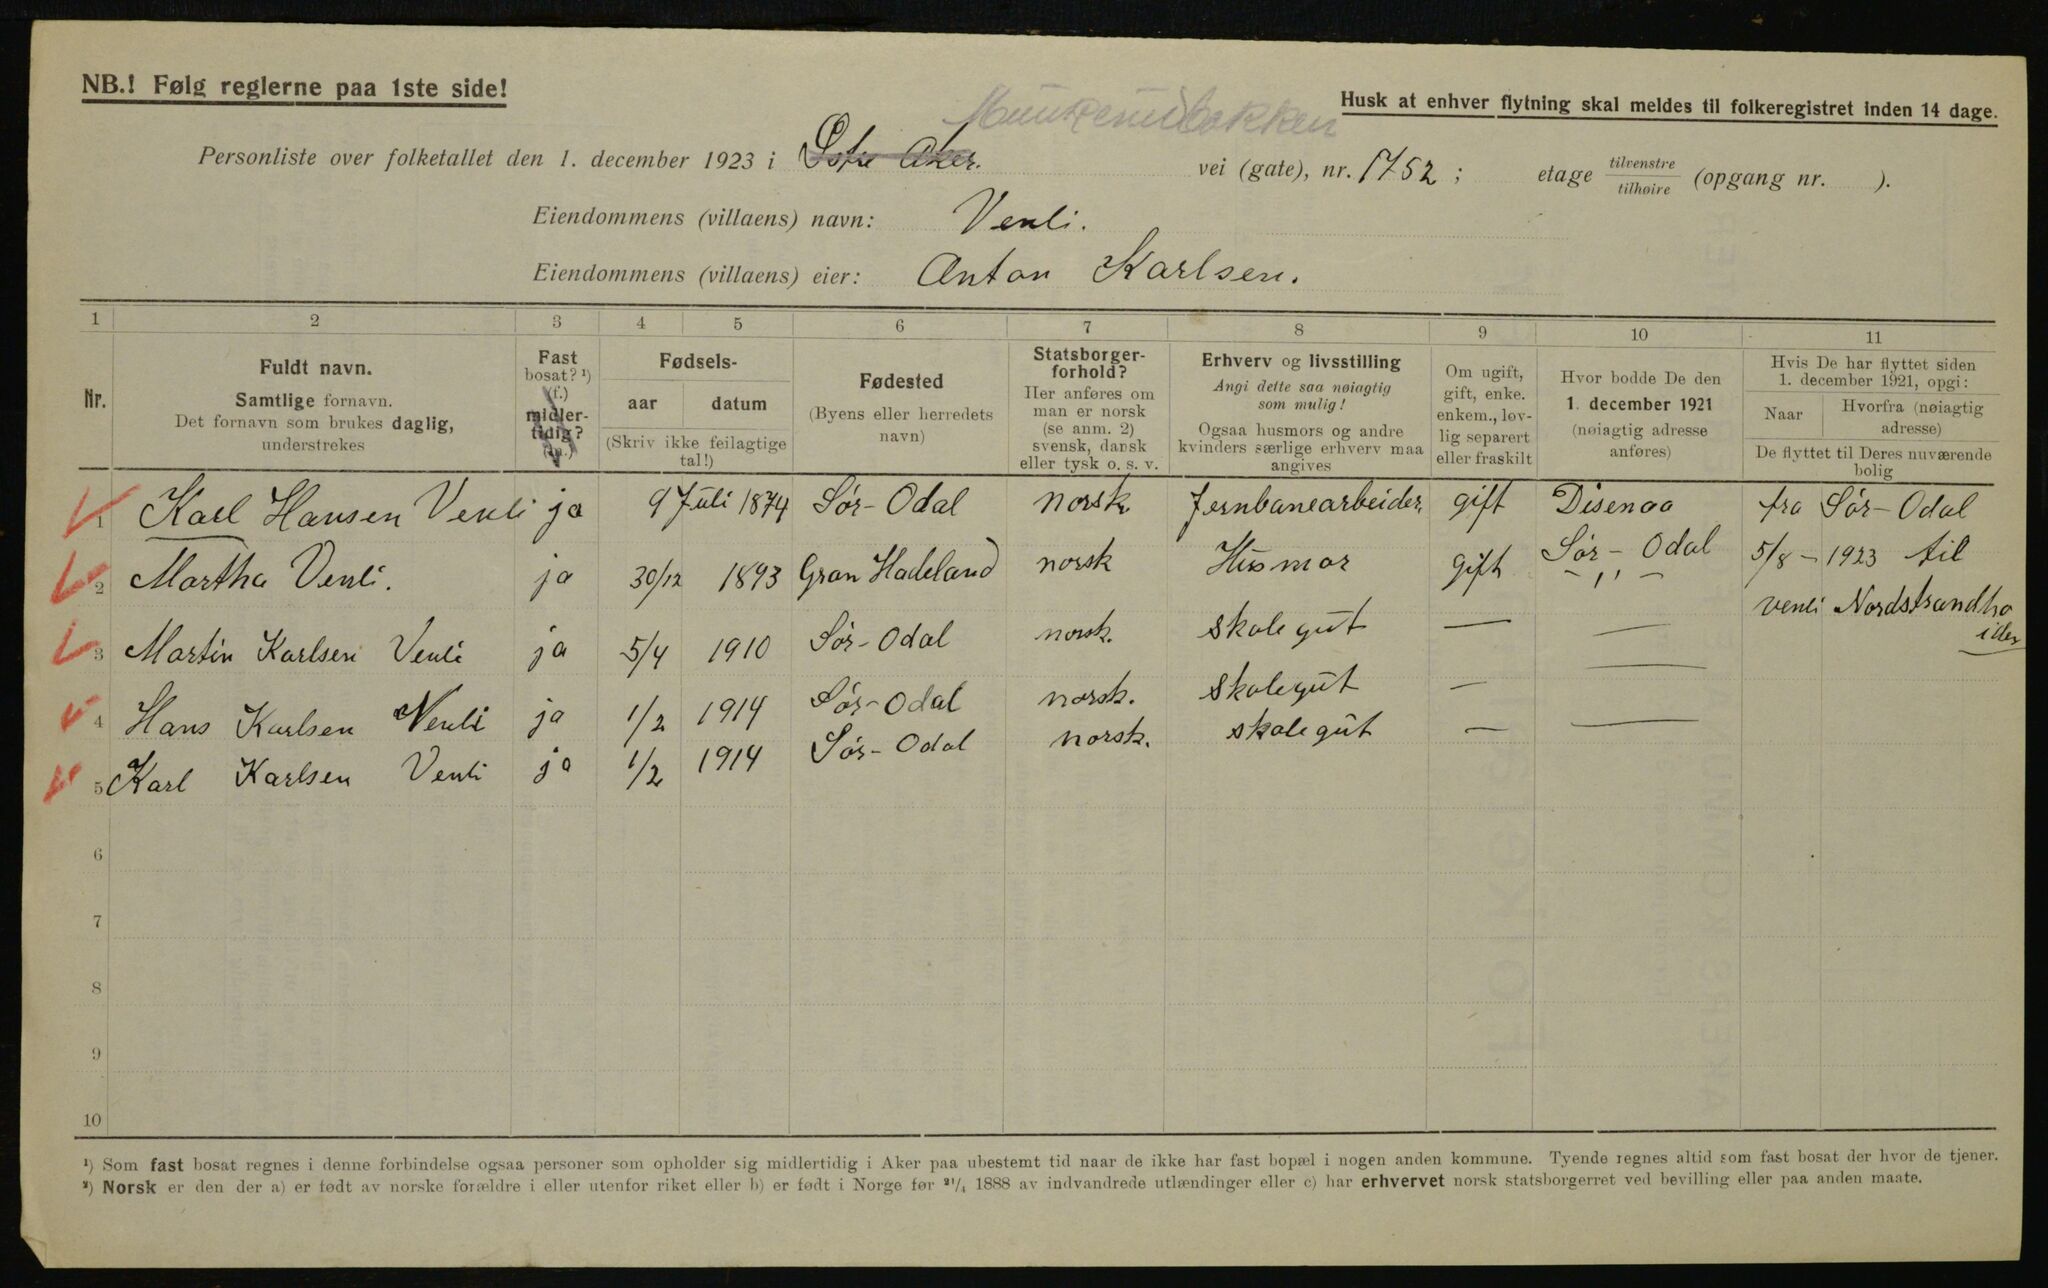 NB.! Følg reglerne paa 1ste side!
Husk at enhver flytning skal meldes til folkeregistret inden 14 dage.
Personliste over folketallet den 1. december 1923 i Østre Aker. vei (gate), nr. 1752; etage tilvenstre tilhøire (opgang nr. ).
Eiendommens (villaens) navn: Venli.
Eiendommens (villaens) eier: Anton Karlsen.
1 2 3 4 5 6 7 8 9 10 11
Nr.
Fuldt navn.
Samtlige fornavn.
Det fornavn som brukes daglig,
understrekes
Fast
bosat? ¹)
(f.)
midler-
tidig?
(m.)
Fødsels-
aar datum
(Skriv ikke feilagtige
tal!)
Fødested
(Byens eller herredets
navn)
Statsborger-
forhold?
Her anføres om
man er norsk
(se anm. 2)
svensk, dansk
eller tysk o. s. v.
Erhverv og livsstilling
Angi dette saa nøiagtig
som mulig!
Ogsaa husmors og andre
kvinders særlige erhverv maa
angives
Om ugift,
gift, enke.
enkem., løv-
lig separert
eller fraskilt
Hvor bodde De den
1. december 1921
(nøiagtig adresse
anføres)
Hvis De har flyttet siden
1. december 1921, opgi:
Naar Hvorfra (nøiagtig
adresse)
De flyttet til Deres nuværende
bolig
1 Karl Hansen Venli ja 9 Juli 1874 Sør-Odal norsk jernbanearbeider gift Disenaa fra Sør-Odal
Sør-Odal
2 Martha Venli. ja 30/12 1893 Gran Hadeland norsk Husmor gift - " - 5/8 - 1923 til
venli Nordstrandhø
iden
3 Martin Karlsen Venli ja 5/4 1910 Sør-Odal norsk. skolegut — —
4 Hans Karlsen Venli ja 1/2 1914 Sør-Odal norsk. skolegut — —
5 Karl Karlsen Venli ja 1/2 1914 Sør-Odal norsk. skolegut — —
6
7
8
9
10
¹) Som fast bosat regnes i denne forbindelse ogsaa personer som opholder sig midlertidig i Aker paa ubestemt tid naar de ikke har fast bopæl i nogen anden kommune. Tyende regnes altid som fast bosat der hvor de tjener.
²) Norsk er den der a) er født av norske forældre i eller utenfor riket eller b) er født i Norge før ²¹/₄ 1888 av indvandrede utlændinger eller c) har erhvervet norsk statsborgerret ved bevilling eller paa anden maate.